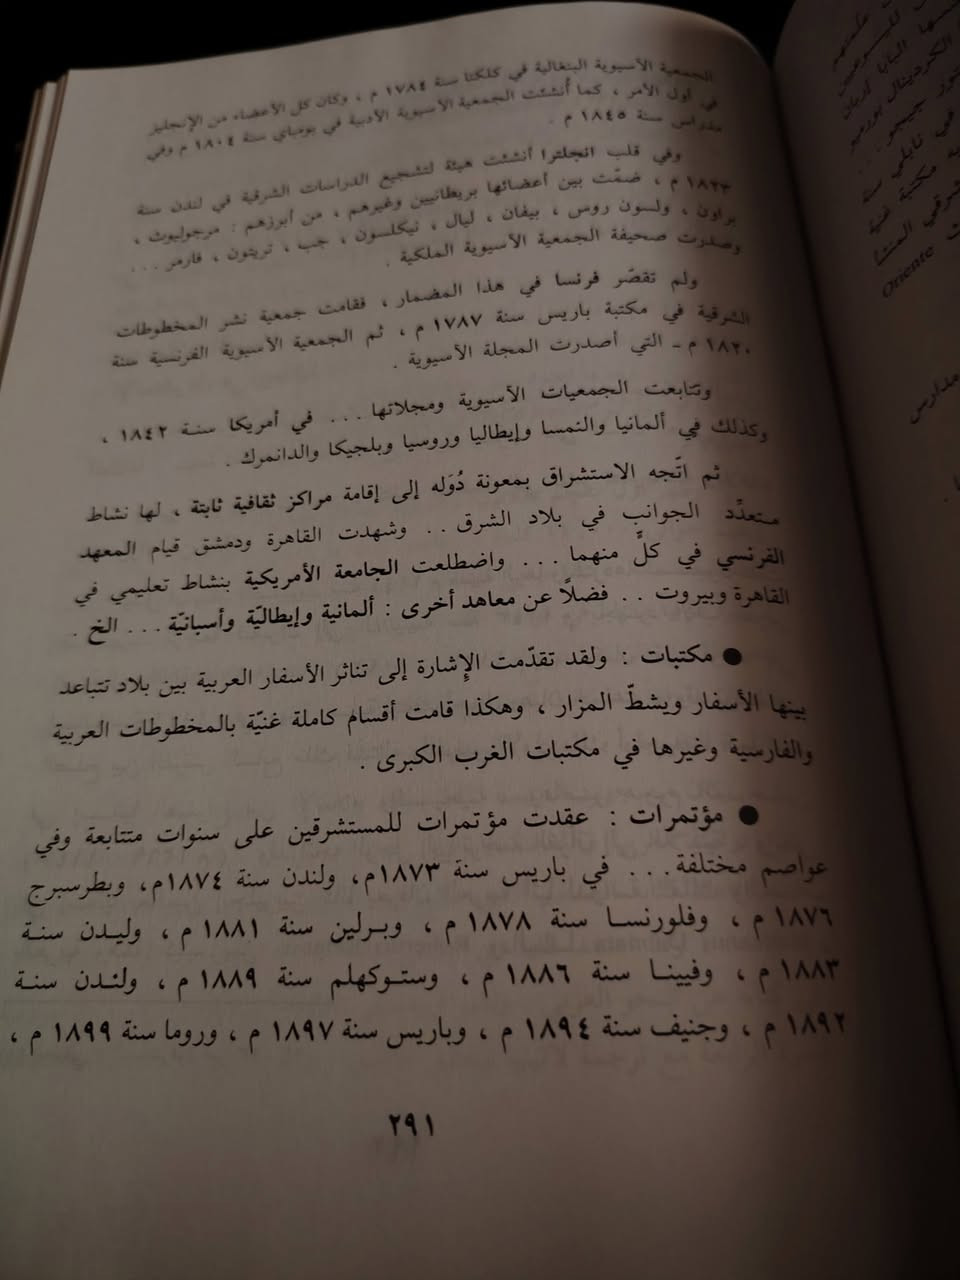 الجمعية الآسيوية البنغالية في كلكتا سنة ١٧٨٤ م ، وكان كل الأعضاء من الإنجليز
في أول الأمر ، كما أُنشئت الجمعية الآسيوية الأدبية في بومباي سنة ١٨٠٤ م وفي
مدراس سنة ١٨٤٥ م .
وفي قلب انجلترا أنشئت هيئة لتشجيع الدراسات الشرقية في لندن سنة
١٨٢٣ م ، ضمّت بين أعضائها بريطانيين وغيرهم ، من أبرزهم : مرجوليوث ،
براون ، ولسون روس ، بيفان ، ليال ، نيكلسون ، جب ، تريتون ، فارمر ...
وصدرت صحيفة الجمعية الآسيوية الملكية .
ولم تقصّر فرنسا في هذا المضمار ، فقامت جمعية نشر المخطوطات
الشرقية في مكتبة باريس سنة ١٧٨٧ م ، ثم الجمعية الآسيوية الفرنسية سنة
١٨٢٠ م ـ التي أصدرت المجلة الآسيوية .
وتتابعت الجمعيات الآسيوية ومجلاتها ... في أمريكا سنة ١٨٤٢ ،
وكذلك في ألمانيا والنمسا وإيطاليا وروسيا وبلجيكا والدانمرك .
ثم اتّجه الاستشراق بمعونة دُوَله إلى إقامة مراكز ثقافية ثابتة ، لها نشاط
متعدِّد الجوانب في بلاد الشرق .. وشهدت القاهرة ودمشق قيام المعهد
الفرنسي في كلٍّ منهما ... واضطلعت الجامعة الأمريكية بنشاط تعليمي في
القاهرة وبيروت .. فضلًا عن معاهد أخرى : ألمانية وإيطاليّة وأسبانيّة ... الخ .
● مكتبات : ولقد تقدّمت الإشارة إلى تناثر الأسفار العربية بين بلاد تتباعد
بينها الأسفار ويشطّ المزار ، وهكذا قامت أقسام كاملة غنيّة بالمخطوطات العربية
والفارسية وغيرها في مكتبات الغرب الكبرى .
● مؤتمرات : عقدت مؤتمرات للمستشرقين على سنوات متتابعة وفي
عواصم مختلفة... في باريس سنة ١٨٧٣م، ولندن سنة ١٨٧٤م، وبطرسبرج
١٨٧٦ م ، وفلورنسا سنة ١٨٧٨ م ، وبرلين سنة ١٨٨١ م ، وليدن سنة
١٨٨٣ م ، وفيينا سنة ١٨٨٦ م ، وستوكهلم سنة ١٨٨٩ م ، ولندن سنة
١٨٩٢ م ، وجنيف سنة ١٨٩٤ م ، وباريس سنة ١٨٩٧ م ، وروما سنة ١٨٩٩ م ،
٢٩١
سها البابا أربان
الكردينال بورميو
في نابلي سنة
مكتبة غنية
Oriente
مدارس